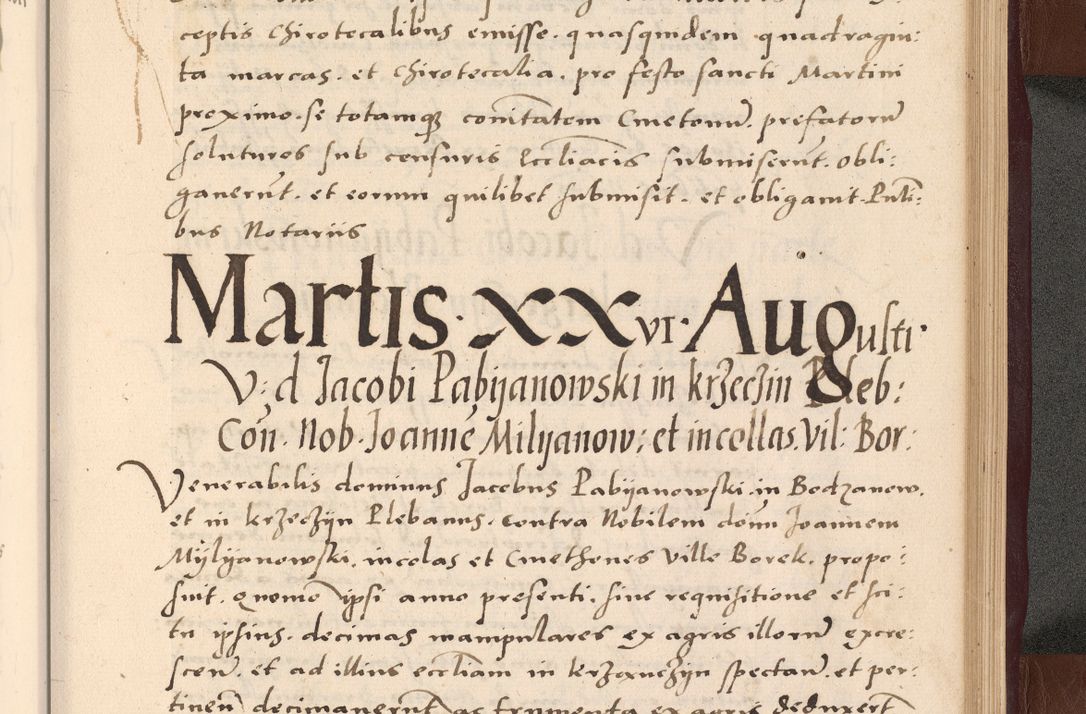 ceptis Chirotecalibus emisse. quasquidem quadragin:
ta marcas. et Chirotecalia. pro festo sancti Martini
proximo. se totamq3 comitatem Cmetonu. prefatoru
soluturos sub censuris Eccliacis submiserut. obli:
gauerut. et eorum quilibet submisit. et obligauit. Pnti:
bus Notariis
Martis. XXvi. Augusti.
V: d Jacobi Pabijanowski in krzeczin Pleb:
Con. Nob. Joanne Milyanow: et incollas. Vil: Bor:
Venerabilis dominus Jacobus Pabijanowski. in Bodzanow.
et in krzeczijn Plebanus. contra Nobilem donu Joannem
Mylyanowski. incolas et Cmethones Ville Borek. propo:
suit. quomo ipsi anno presenti. sine requisitione et sci:
tu ipsius. decimas manipulares ex agris illoru excre:
scen. et ad illius eccliam in spectan. et per:
tinen decimauerut ac frumenta ex agris deduxert